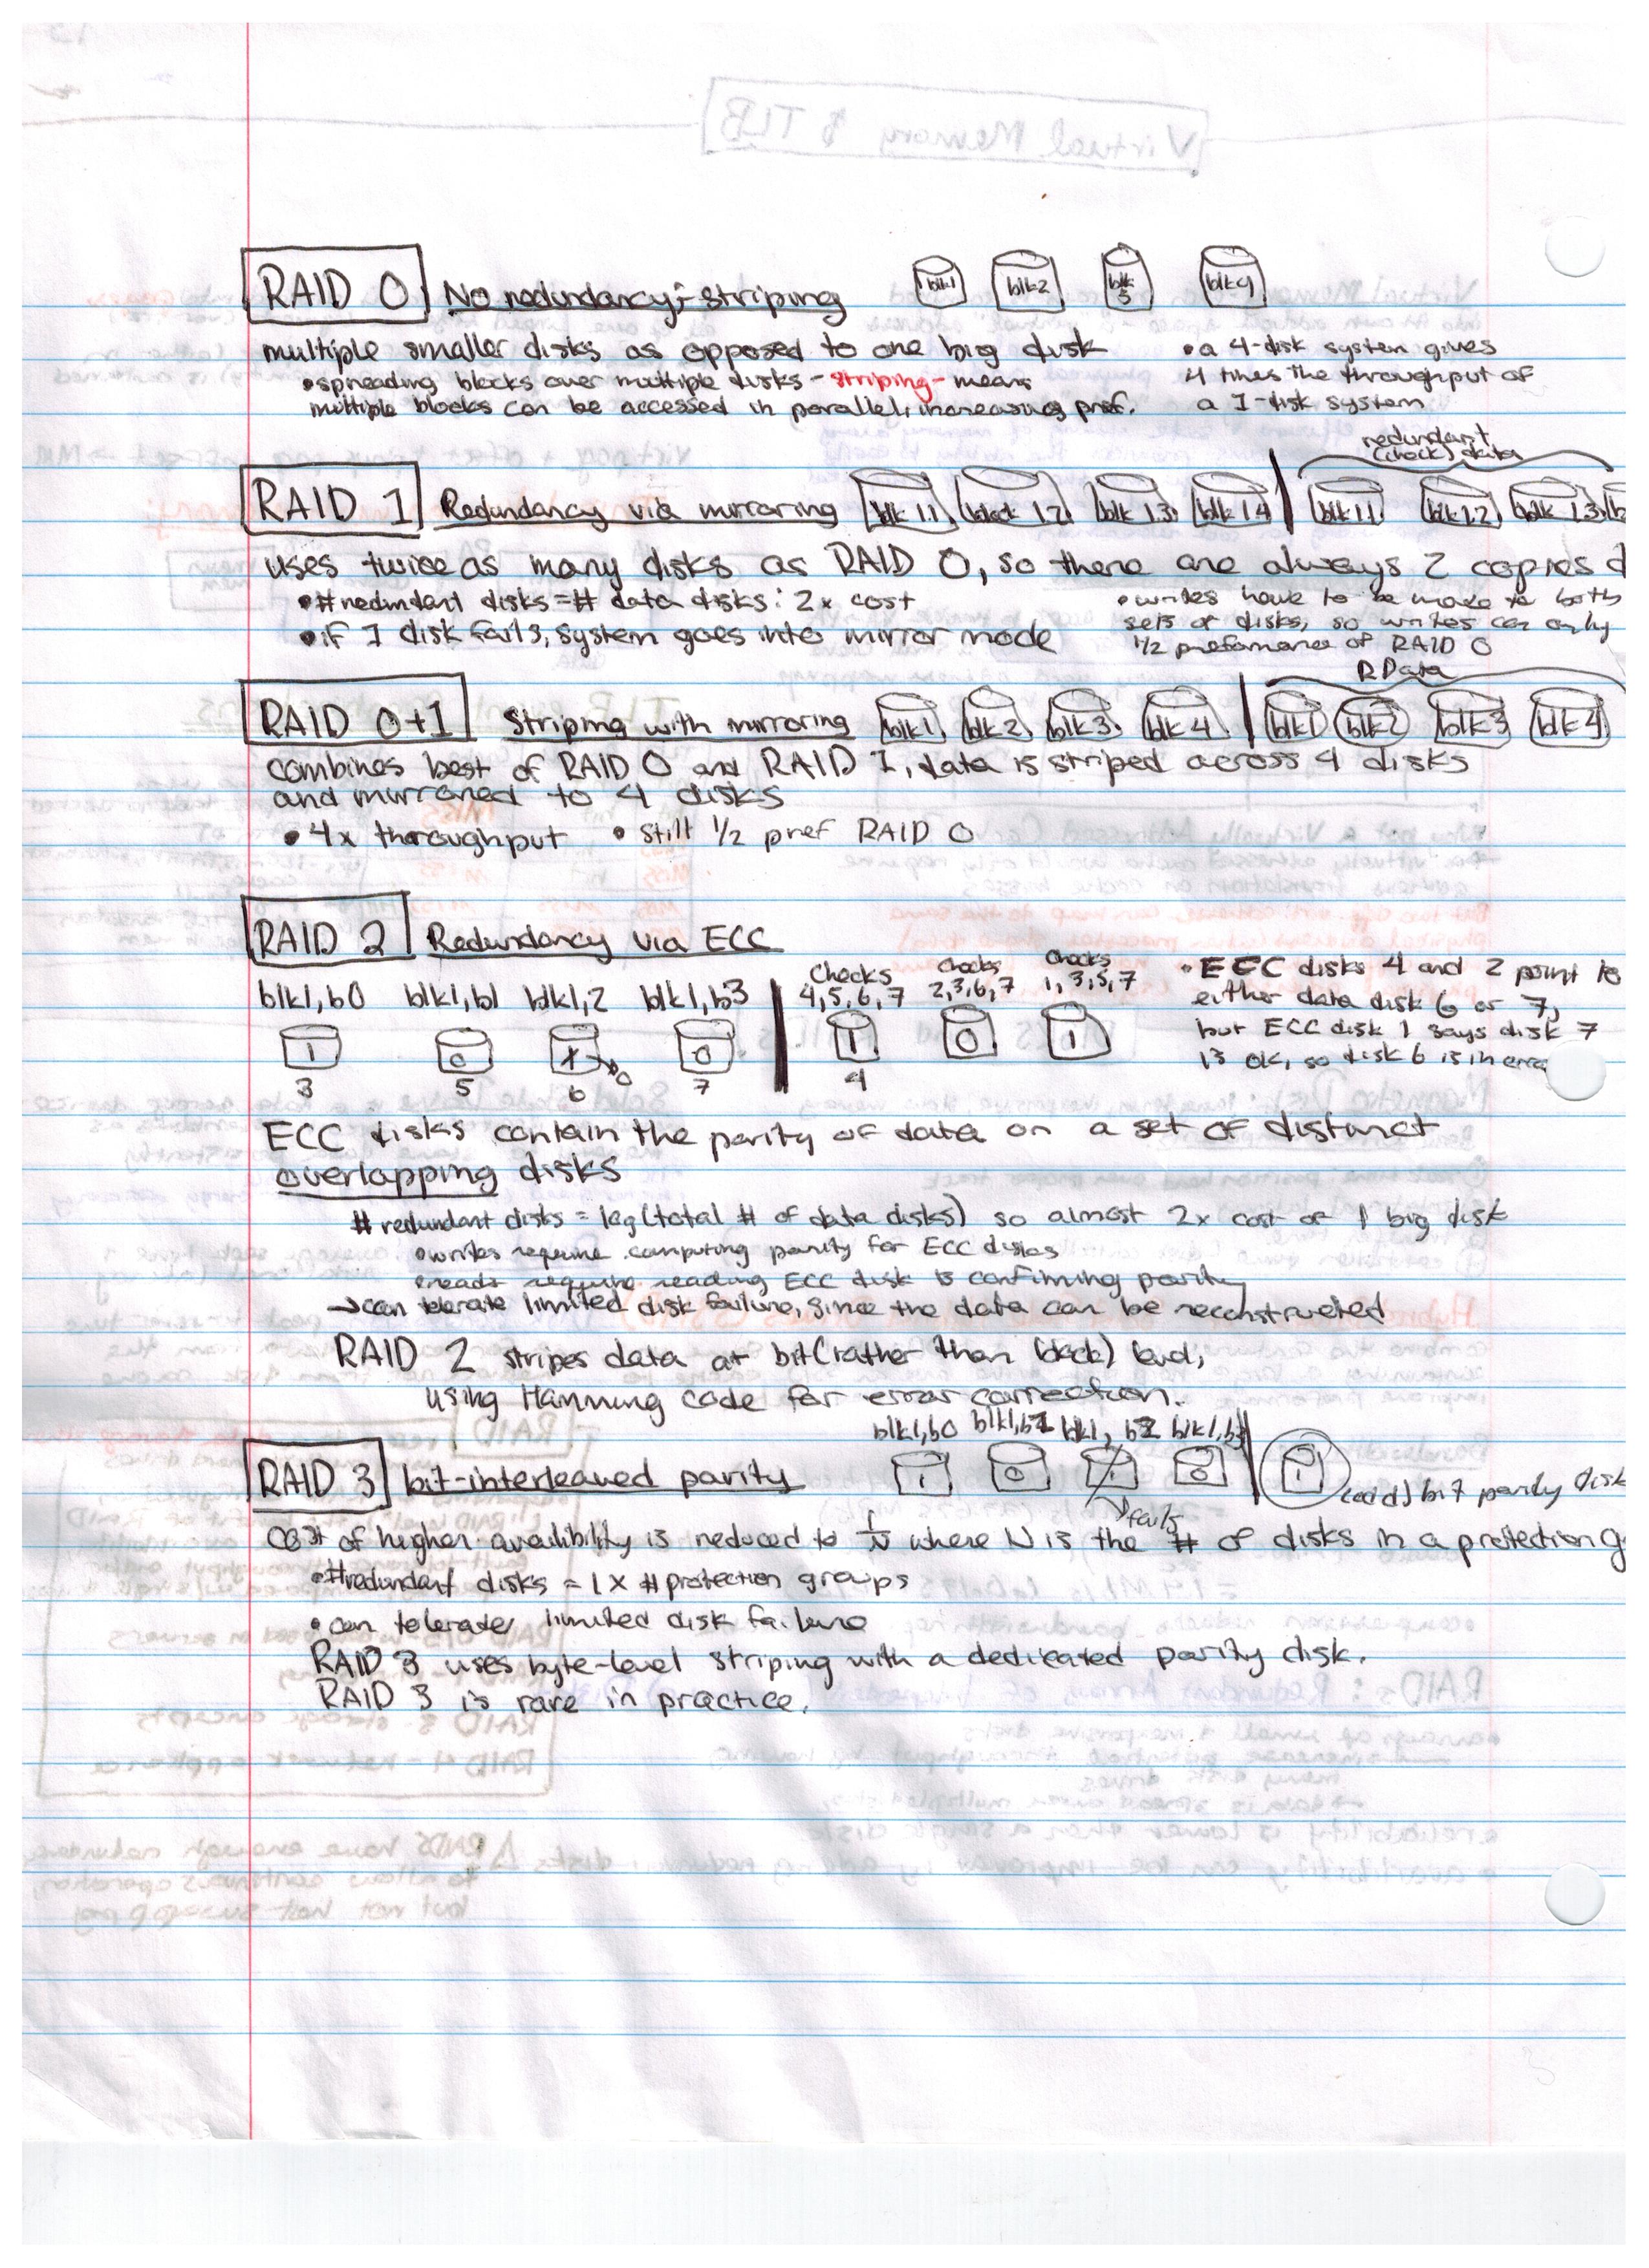 RAID 0 No redundancy; striping blk1 blk2 blk3 blk4
multiple smaller disks as opposed to one big disk
• spreading blocks over multiple disks - striping - means
multiple blocks can be accessed in parallel, increasing pref.
• a 4-disk system gives
4 times the throughput of
a 1-disk system
redundant
(check) data
RAID 1 Redundancy via mirroring blk 1.1 1.2 blk 1.3 blk 1.4 blk 1.1 blk 1.2 blk 1.3
uses twice as many disks as RAID 0, so there are always 2 copies
• #redundant disks = # data disks: 2x cost
• if 1 disk fails, system goes into mirror mode
• writes have to be made to both
sets of disks, so writes can only
1/2 preformance of RAID 0
RData
RAID 0+1 Striping with mirroring blk1 blk2 blk3 blk4 blk1 blk2 blk3 blk4
combines best of RAID 0 and RAID 1, data is striped across 4 disks
and mirrored to 4 disks
• 4x thoroughput • still 1/2 pref RAID 0
RAID 2 Redundancy via ECC
blk1,b0 blk1,b1 blk1,2 blk1,b3
Checks
4,5,6,7
Checks
2,3,6,7
Checks
1,3,5,7
1 0 1 0 0 1 0 1
3 5 6 7 4
• ECC disks 4 and 2 point to
either data disk 6 or 7,
but ECC disk 1 says disk 7
is ok, so disk 6 is in
ECC disks contain the parity of data on a set of distinct
overlapping disks
# redundant disks = log(total # of data disks) so almost 2x cost of 1 big disk
• writes require computing parity for ECC disks
• reads require reading ECC disk & confirming parity
→ can tolerate limited disk failure, since the data can be reconstructed
RAID 2 stripes data at bit (rather than block) level,
using Hamming code for error correction.
blk1,b0 blk1,b1 blk1, b2 blk1,b3
RAID 3 bit-interleaved parity 1 0 1 0 1 (odd) bit parity disk
fails
cost of higher availibility is reduced to 1/N where N is the # of disks in a protection
• #redundant disks = 1 x # protection groups
• can tolerate limited disk failure
RAID 3 uses byte-level striping with a dedicated parity disk.
RAID 3 is rare in practice.